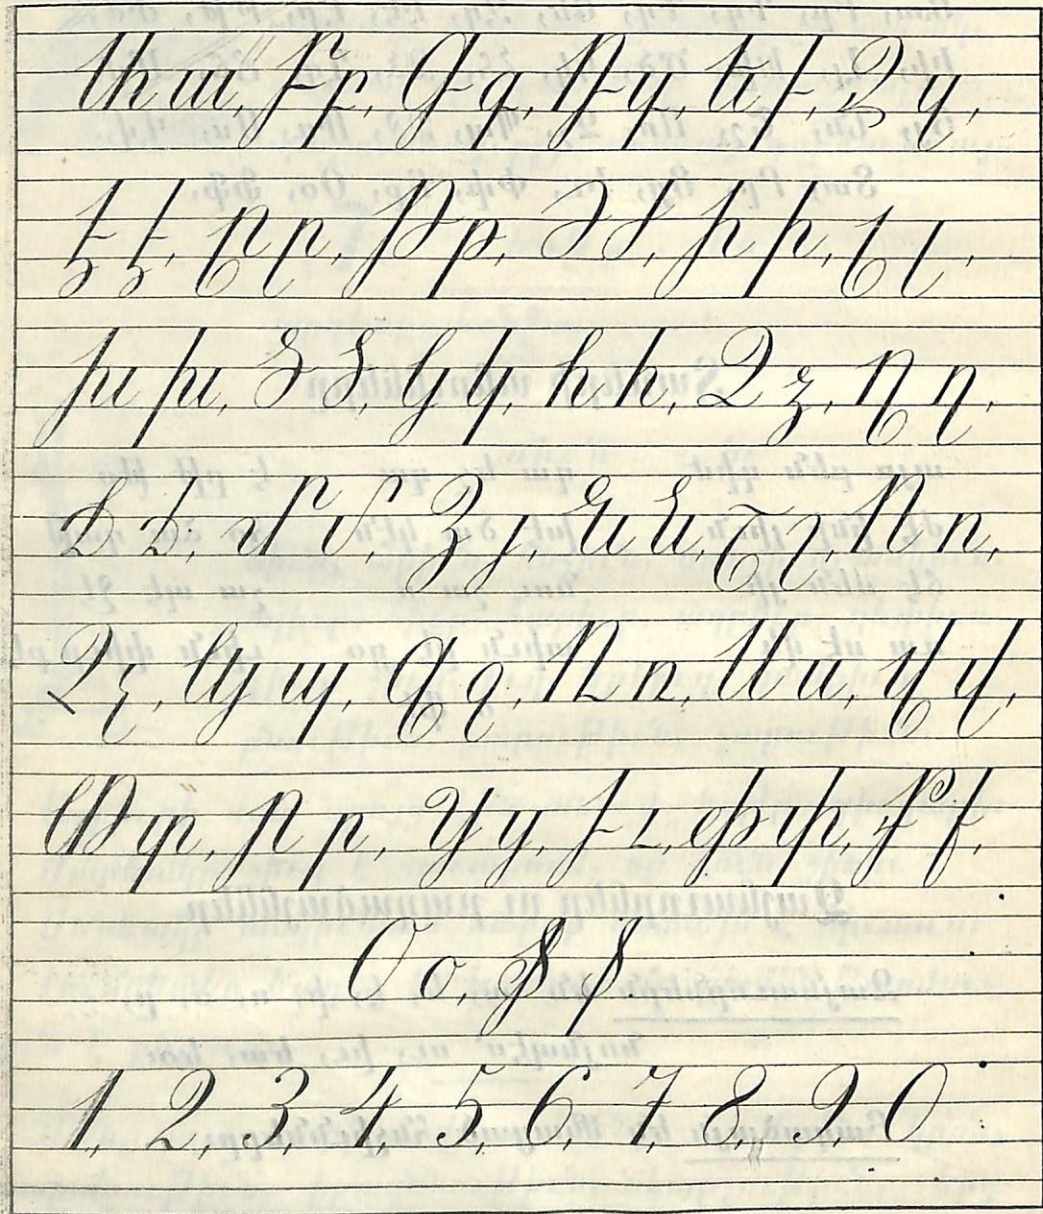 Ա ա, Բ բ, Գ գ, Դ դ, Ե ե, Զ զ,
Է է, Ը ը, Թ թ, Ժ ժ, Ի ի, Լ լ,
Խ խ, Ծ ծ, Կ կ, Հ հ, Ձ ձ, Ղ ղ,
Ճ ճ, Մ մ, Յ յ, Ն ն, Շ շ, Ո ո,
Չ չ, Պ պ, Ջ ջ, Ռ ռ, Ս ս, Վ վ,
Տ տ, Ր ր, Ց ց, Ւ ւ, Փ փ, Ք ք,
Օ օ, Ֆ ֆ.
1, 2, 3, 4, 5, 6, 7, 8, 9, 0